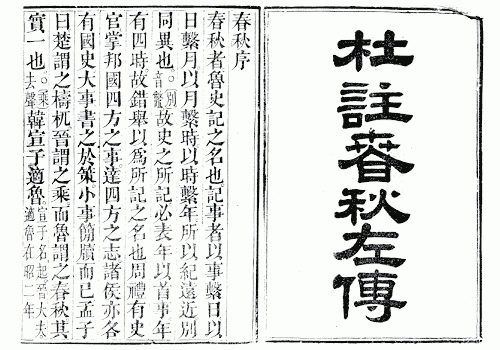 杜註萅秋左傳
春秋序
春秋者魯史記之名也記事者以事繫日以
日繫月以月繫時以時繫年所以紀遠近別
同異也。別音鱉故史之所記必表年以首事年
有四時故錯舉以爲所記之名也周禮有史
官掌邦國四方之事達四方之志諸侯亦各
有國史大事書之於策小事簡牘而已孟子
曰楚謂之檮杌晉謂之乘而魯謂之春秋其
實一也。乘去聲韓宣子適魯宣子名起晉大夫適魯在昭二年